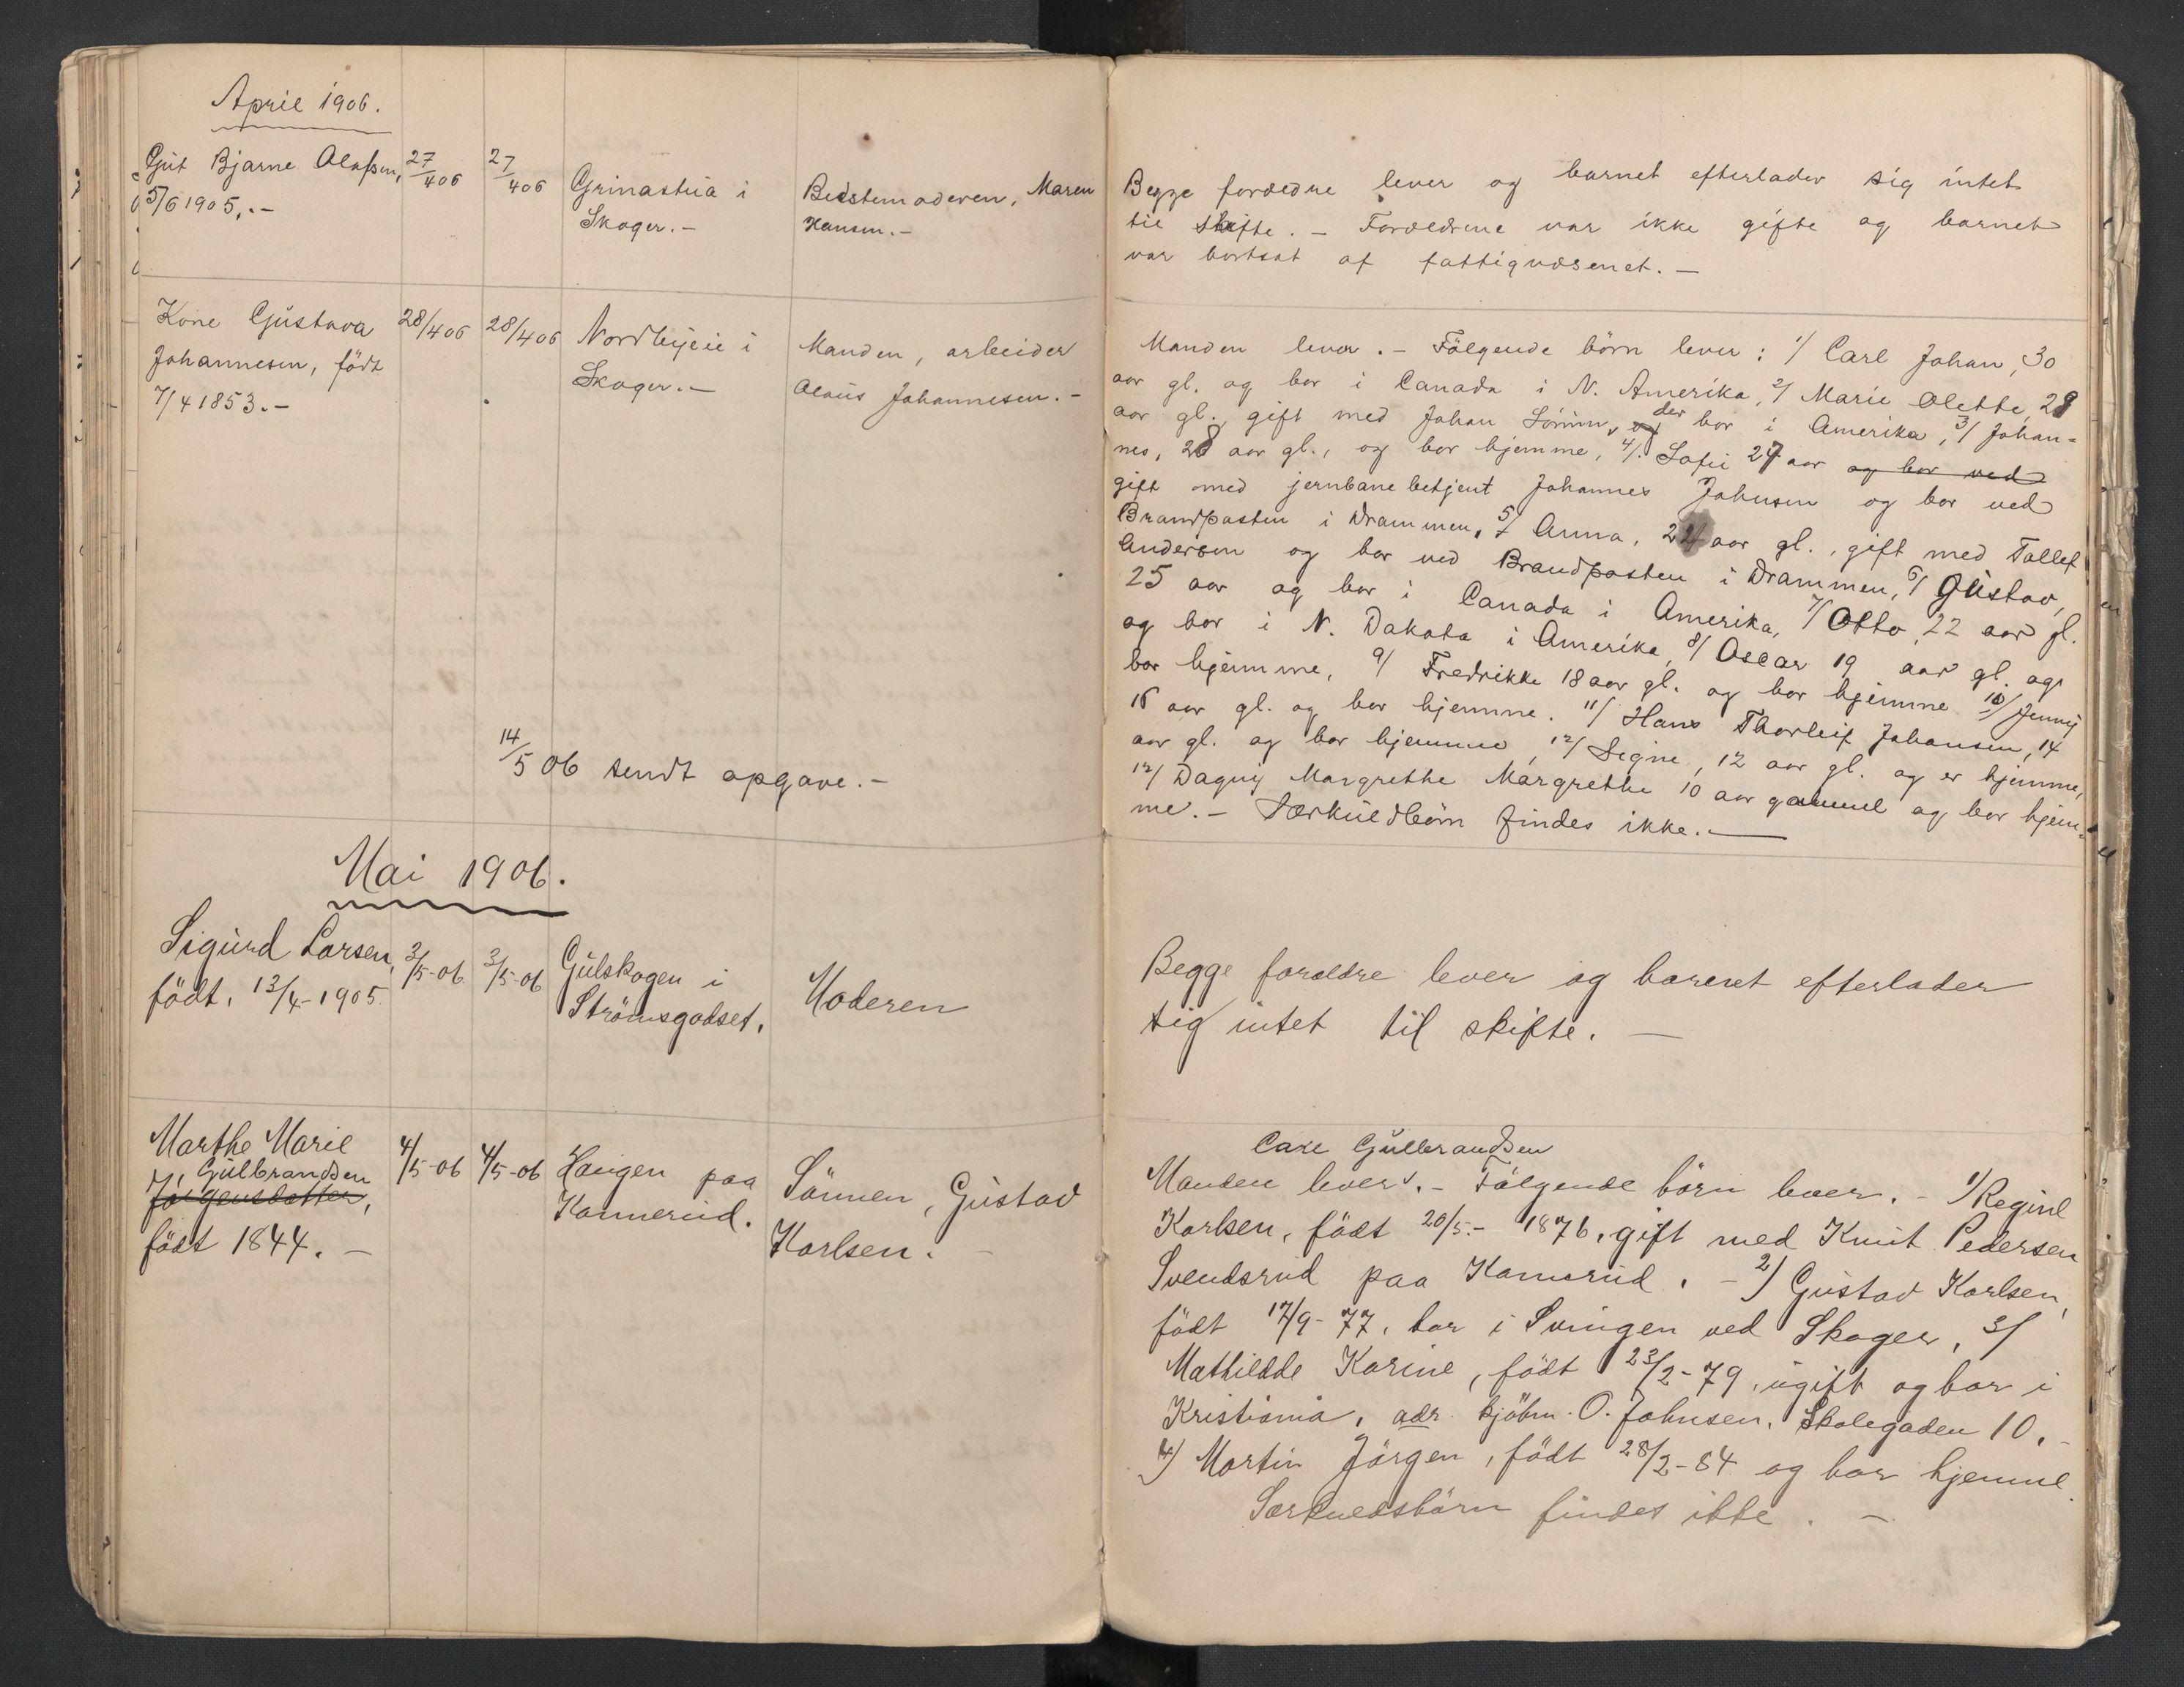 April 1906.
Gut Bjarne Olafsen,
5/6 1905.-
27/4 06
27/4 06
Grinastua i
Skoger.-
Bedstemoderen, Maren
Hansen.-
Begge forældre lever og barnet efterlader sig intet
til skifte. - Forældrene var ikke gifte og barnet
var bortsat af fattigvæsenet. -
Kone Gustava
Johannesen, født
7/4 1853.-
28/4 06
28/4 06
i
Skoger.-
Manden, arbeider
Olaus Johannesen.-
Manden lever. - Følgende børn lever: 1/ Carl Johan, 30
aar gl. og bor i Canada i N. Amerika, 2/ Marie Olette, 29
aar gl., gift med Johan der bor i Amerika, 3/ Johan=
nes, 28 aar gl., og bor hjemme, 4/. Sofie 27 aar og bor ved
gift med jernbanebetjent Johannes Johnsen og bor ved
Brandposten i Drammen, 5/ Anna, 24 aar gl., gift med Tollef
Andersen og bor ved Brandposten i Drammen, 6/ Gustav,
25 aar og bor i Canada i Amerika, 7/ Otto, 22 aar gl.
og bor i N. Dakota i Amerika, 8/ Oscar 19 aar gl. og
bor hjemme, 9/ Fredrikke 18 aar gl. og bor hjemme 10/ Jenny
16 aar gl. og bor hjemme. 11/ Hans Thorleif Johansen, 14
aar gl. og bor hjemme, 12/ Signe, 12 aar gl. og er hjemme,
12/ Dagny Margrethe Margrethe 10 aar gammel og bor hjem=
me. - Særkuldbørn findes ikke. -
14/5 06 sendt opgave.-
Mai 1906.
Sigurd Larsen,
født, 13/4-1905
3/5-06
3/5-06
Gulskogen i
Strømsgodset.
Moderen
Begge forældre lever og barnet efterlader
sig intet til skifte. -
Marthe Marie
Gulbrandsen
Jörgensdatter,
født 1844. -
4/5-06
4/5-06
Haugen paa
Konnerud.
Sønnen, Gustav
Karlsen. -
Carl Gulbrandsen
Manden lever. - Følgende börn lever. - 1/ Regine
Karlsen, født 20/5.- 1876, gift med Knut Pedersen
Svendsrud paa Konnerud. - 2) Gustav Karlsen,
født 17/9-77, bor i Svingen ved Skoger, 3/
Mathilde Karine, født 23/2-79, ugift og bor i
Kristiania, adr. kjöbm. O. Johnsen, Skolegaden 10. -
4) Martin Jörgen, født 28/2-84 og bor hjemme.
Særkuldsbörn findes ikke. -